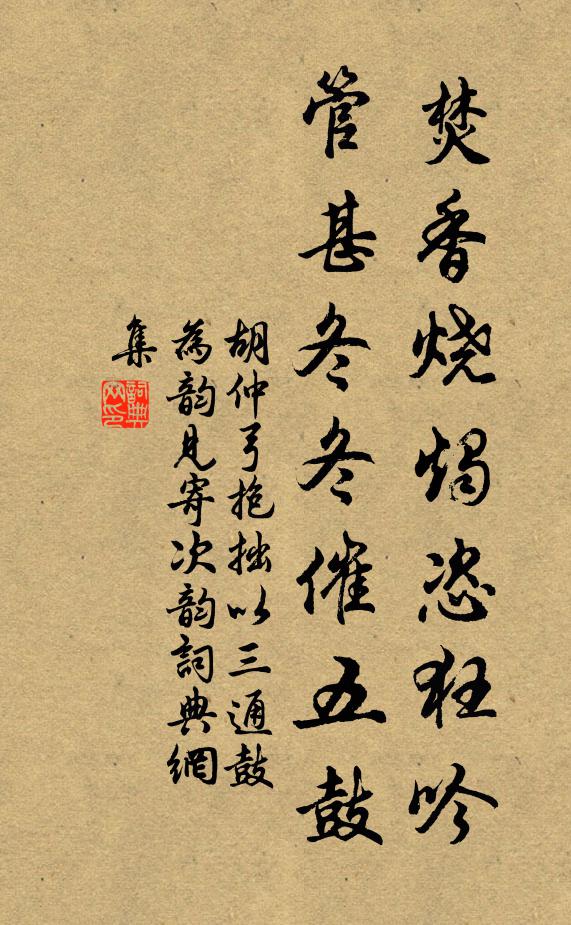 焚香烧烛恣狂吟
管甚冬冬催五鼓
胡仲弓抱拙以三通鼓
為韵見寄次韵詞典網
集
詞典
网印